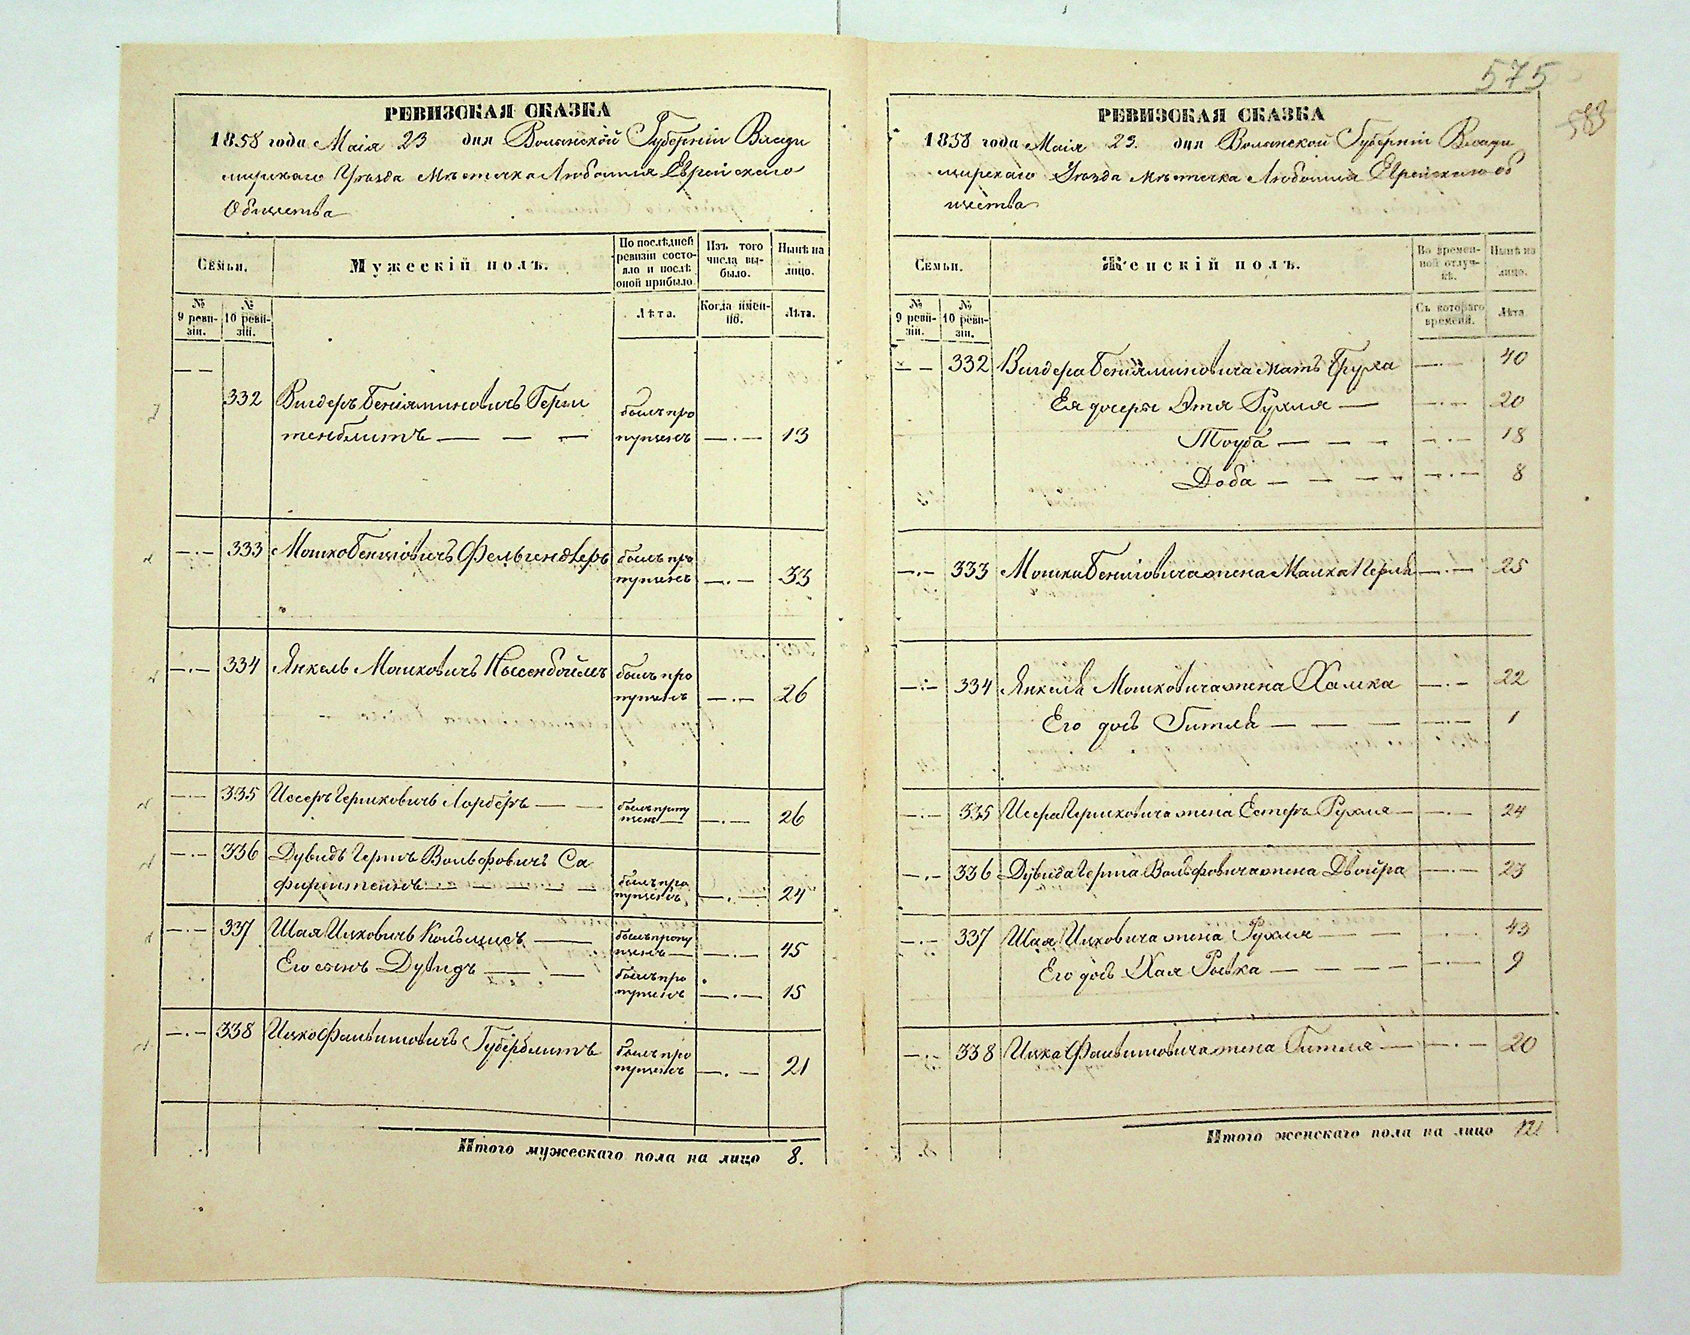 575
583
РЕВИЗСКАЯ СКАЗКА
1858 года Маія 23 дня Волынской Губерніи Влади
мирскаго Уезда местечка Любомля Еврейскаго
Общества
Семьи.
Мужескій полъ.
По послѣдней ревизіи состояло и послѣ оной прибыло.
Изъ того числа выбыло.
Нынѣ на лицо.
№ 9 ревизіи.
№ 10 ревизіи.
Лѣта.
Когда именно.
Лѣта.
332 Вигдеръ Беніяминовичъ Герш
тенблитъ — — — былъ пропущенъ —.— 13
—.— 333 Мошко Беншовичъ былъ пропущенъ —.— 33
—.— 334 Янкель Мошковичъ былъ пропущенъ —.— 26
—.— 335 Иосеръ Гершковичъ Лорберъ — — былъ пропущенъ —.— 26
—.— 336 Дувидъ Гершъ Вольфовичъ Са
фирштейнъ — — — — былъ пропущенъ —.— 24
—.— 337 Шая Ицковичъ — былъ пропущенъ —.— 45
Его сынъ Дувидъ — — былъ пропущенъ —.— 15
—.— 338 Ицко Файвишовичъ Губерблитъ былъ пропущенъ —.— 21
Итого мужескаго пола на лицо 8.
РЕВИЗСКАЯ СКАЗКА
1858 года Маія 23. дня Волынской Губерніи Влади
мирскаго Уезда местечка Любомля Еврейскаго об
щества
Семьи.
Женскій полъ.
Во временной отлучкѣ.
Нынѣ на лицо.
№ 9 ревизіи.
№ 10 ревизіи.
Съ котораго времени.
Лѣта
— — 332 Вигдера Беніяминовича мать Фрума —.— 40
Ея дочери Этя Рухля — —.— 20
Тоуба — — — —.— 18
Доба — — — — —.— 8
—.— 333 Мошка Беншовича жена Малка Перля —.— 25
—.— 334 Янкеля Мошковича жена Хамка —.— 22
Его дочь Гитля — — — —.— 1
—.— 335 Иосера Гершковича жена Естеръ Рухля — —.— 24
—.— 336 Дувида Герша Вольфовича жена Двойра —.— 23
—.— 337 Шая Ицковича жена Рухля — — —.— 43
Его дочь Хая Ривка — — — — —.— 9
—.— 338 Ицка Файвишовича жена Гитля — —.— 20
Итого женскаго пола на лицо 12